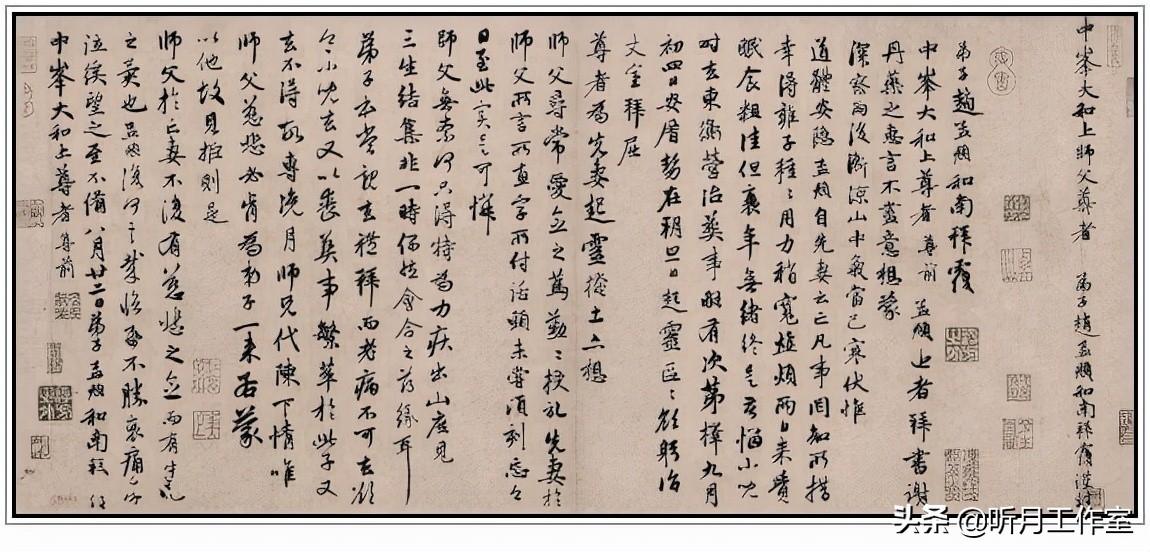 中峯大和上師父尊者 弟子趙孟頫和南拜覆謹封
弟子趙孟頫和南拜覆
中峯大和上尊者尊前 孟頫上者拜書謝
丹藥之惠言不盡意想蒙
深察雨後漸涼山中氣當已寒伏惟
道體安隱孟頫自先妻云亡凡事罔知所措
幸得雍子種種用力稍寬煩兩日來覺
眠食粗佳但衰年無緒終是苦惱小兒
時去東衡營治葬事略有次第擇九月
初四日安厝勢在朔旦日起靈區區欲躬詣
丈室拜屈
尊者為先妻起靈掩土亦想
師父尋常愛念之篤勤勤授記先妻於
師父所言所直字所付話頭未嘗須刻忘之
日至此實是可憐
師父無奈何只得特為力疾出山庶見
三生結集非一時偶然會合之薄緣耳
弟子本當親去禮拜而老病不可去欲
令小兒去又以喪葬事繁萃於此子又
去不得故專浼月師兄代陳下情唯
師父慈悲必肯為弟子一來若蒙
以他故見拒則是
師父於亡妻不復有慈悲之念而有生死
之異也復何言哉臨紙不勝哀痛
泣俟望之至不備八月廿二日弟子孟頫和南拜
中峯大和上尊者尊前
头条 @昕月工作室